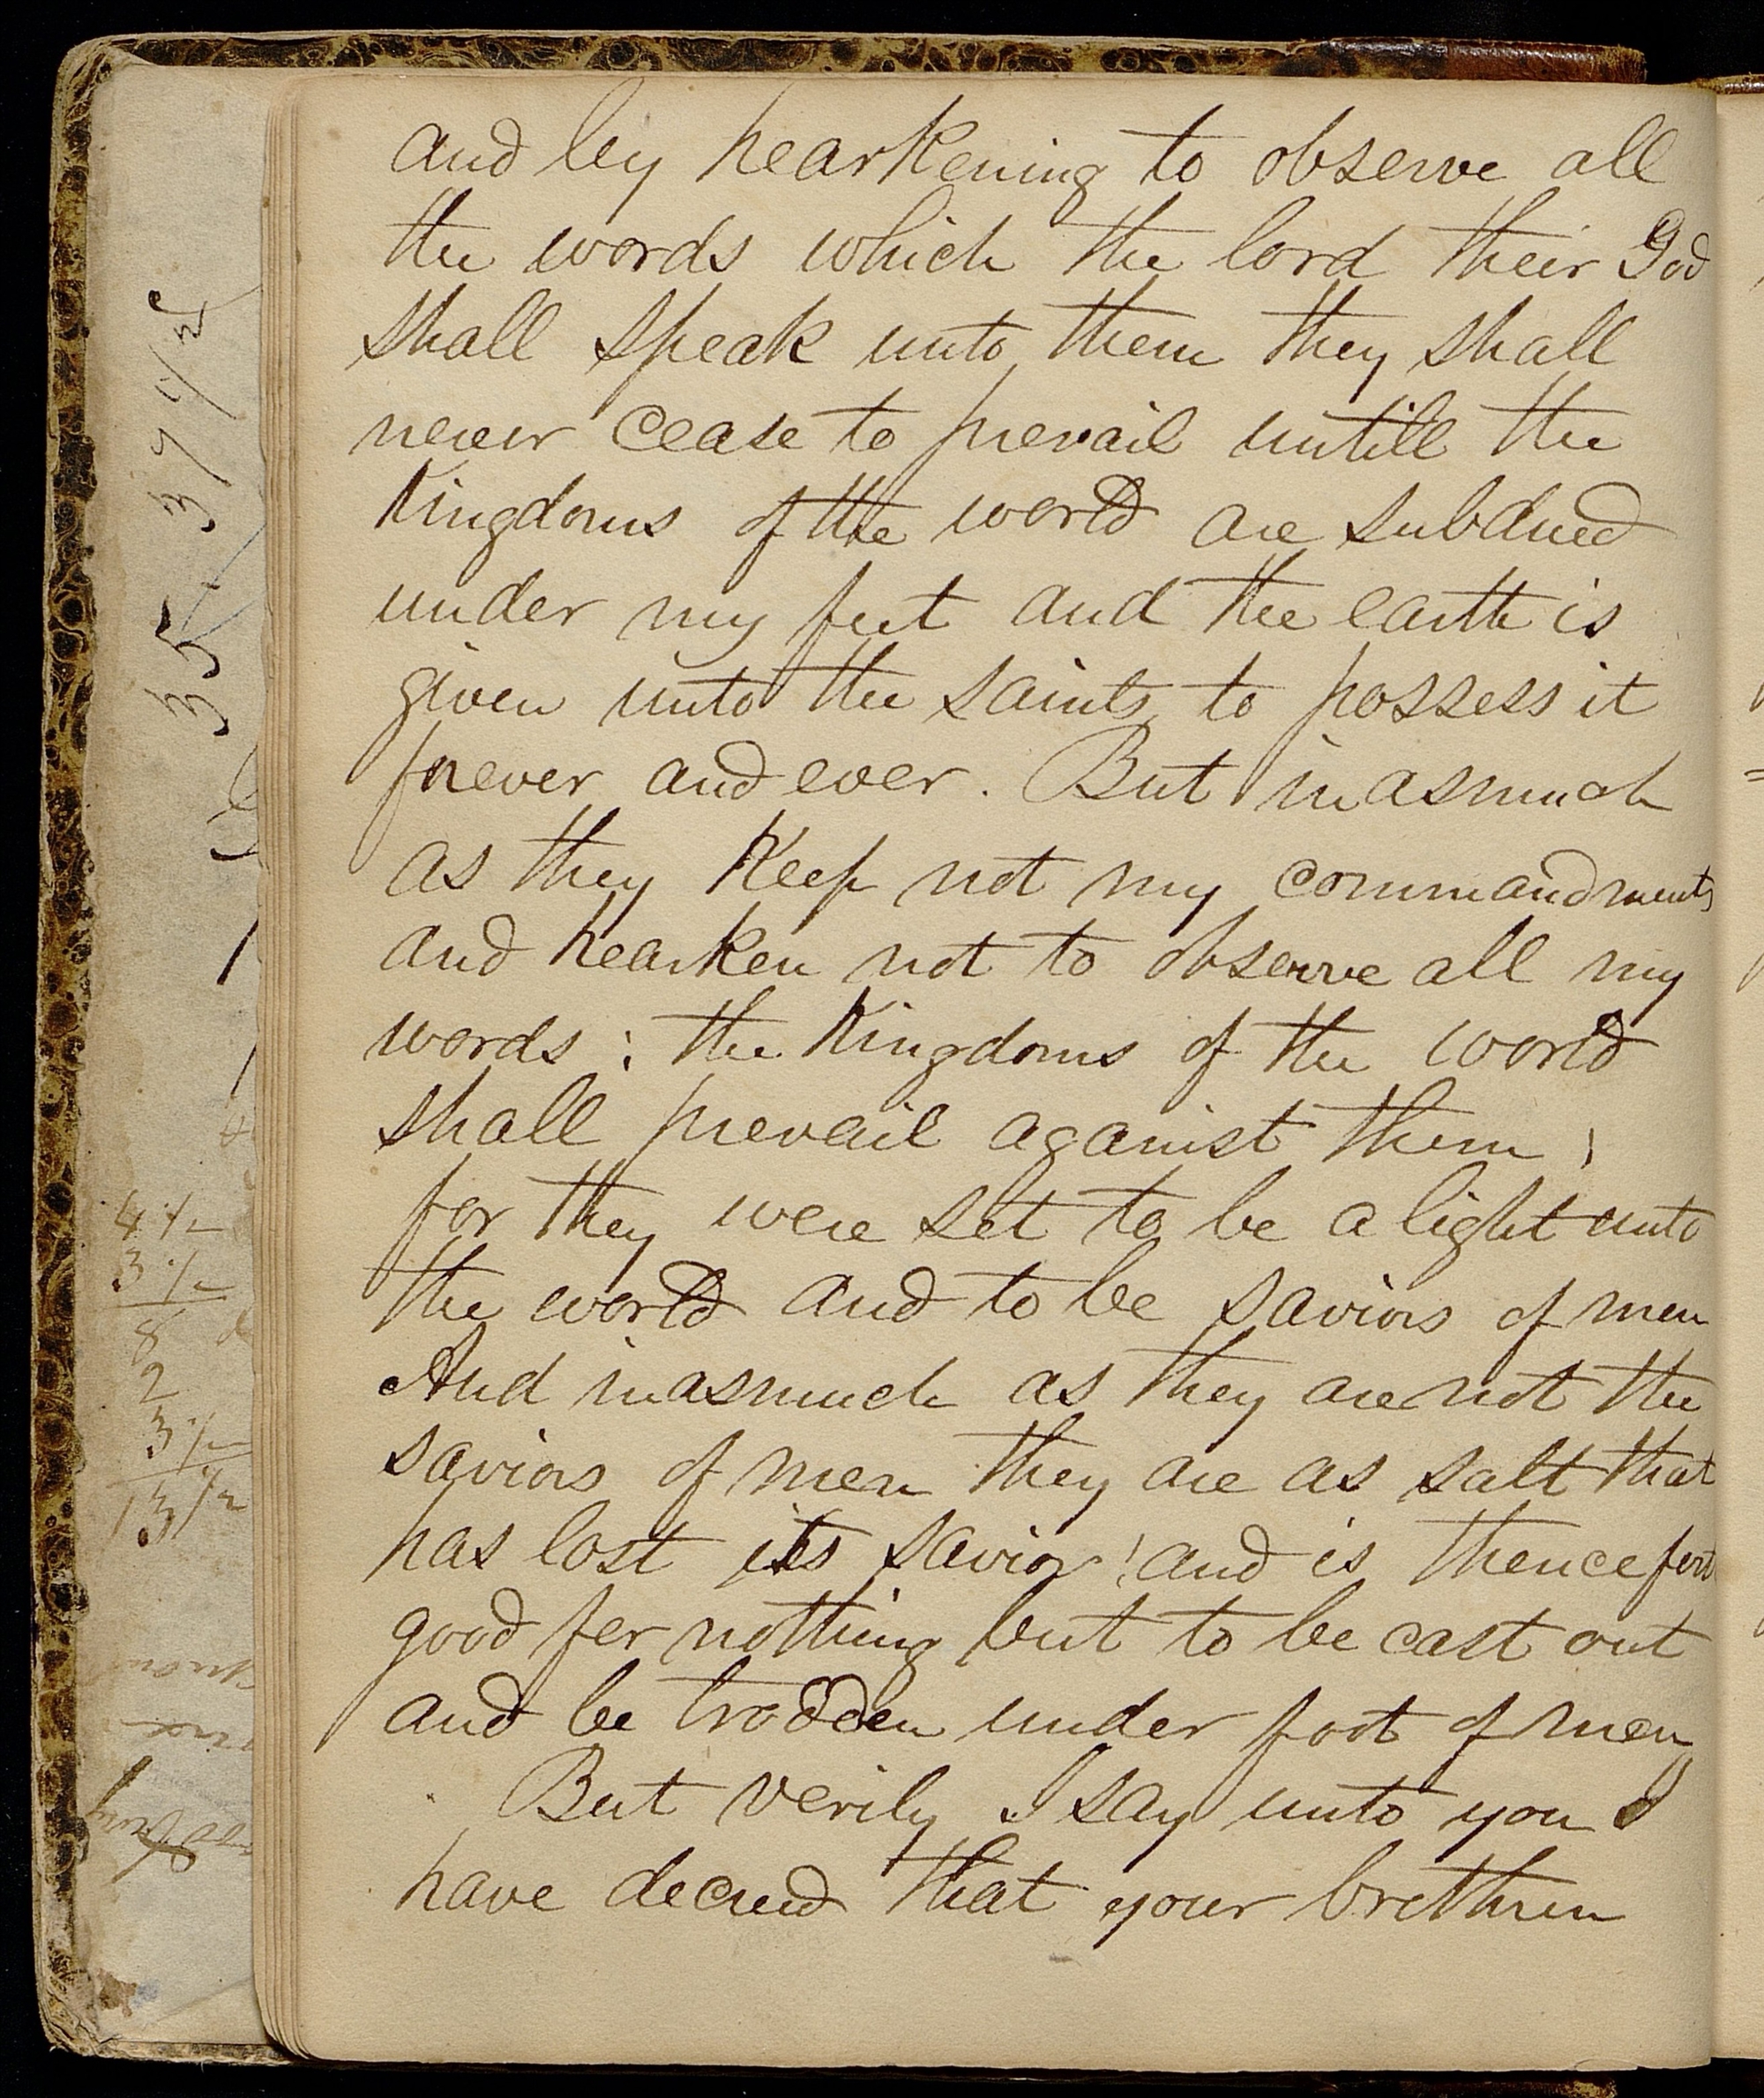 and by hearkening to observe all
the words which the lord their God
shall speak unto them they shall
never cease to prevail untill the
Kingdoms of the world are subdued
under my feet and the earth is
given unto the saints to possess it
forever and ever. But inasmuch
as they Keep not my commandments
and hearken not to observe all my
words; the Kingdoms of the world
shall prevail against them;
for they were set to be a light unto
the world and to be saviors of men
And inasmuch as they are not the
saviors of men they are as salt that
has lost its savior! and is thencefort
good for nothing but to be cast out
and be trodden under foot of men
But verily I say unto you I
have decreed that your brethren
35
37 1/2
4 1/2
3 1/2
8
2
3 1/2
13 1/2